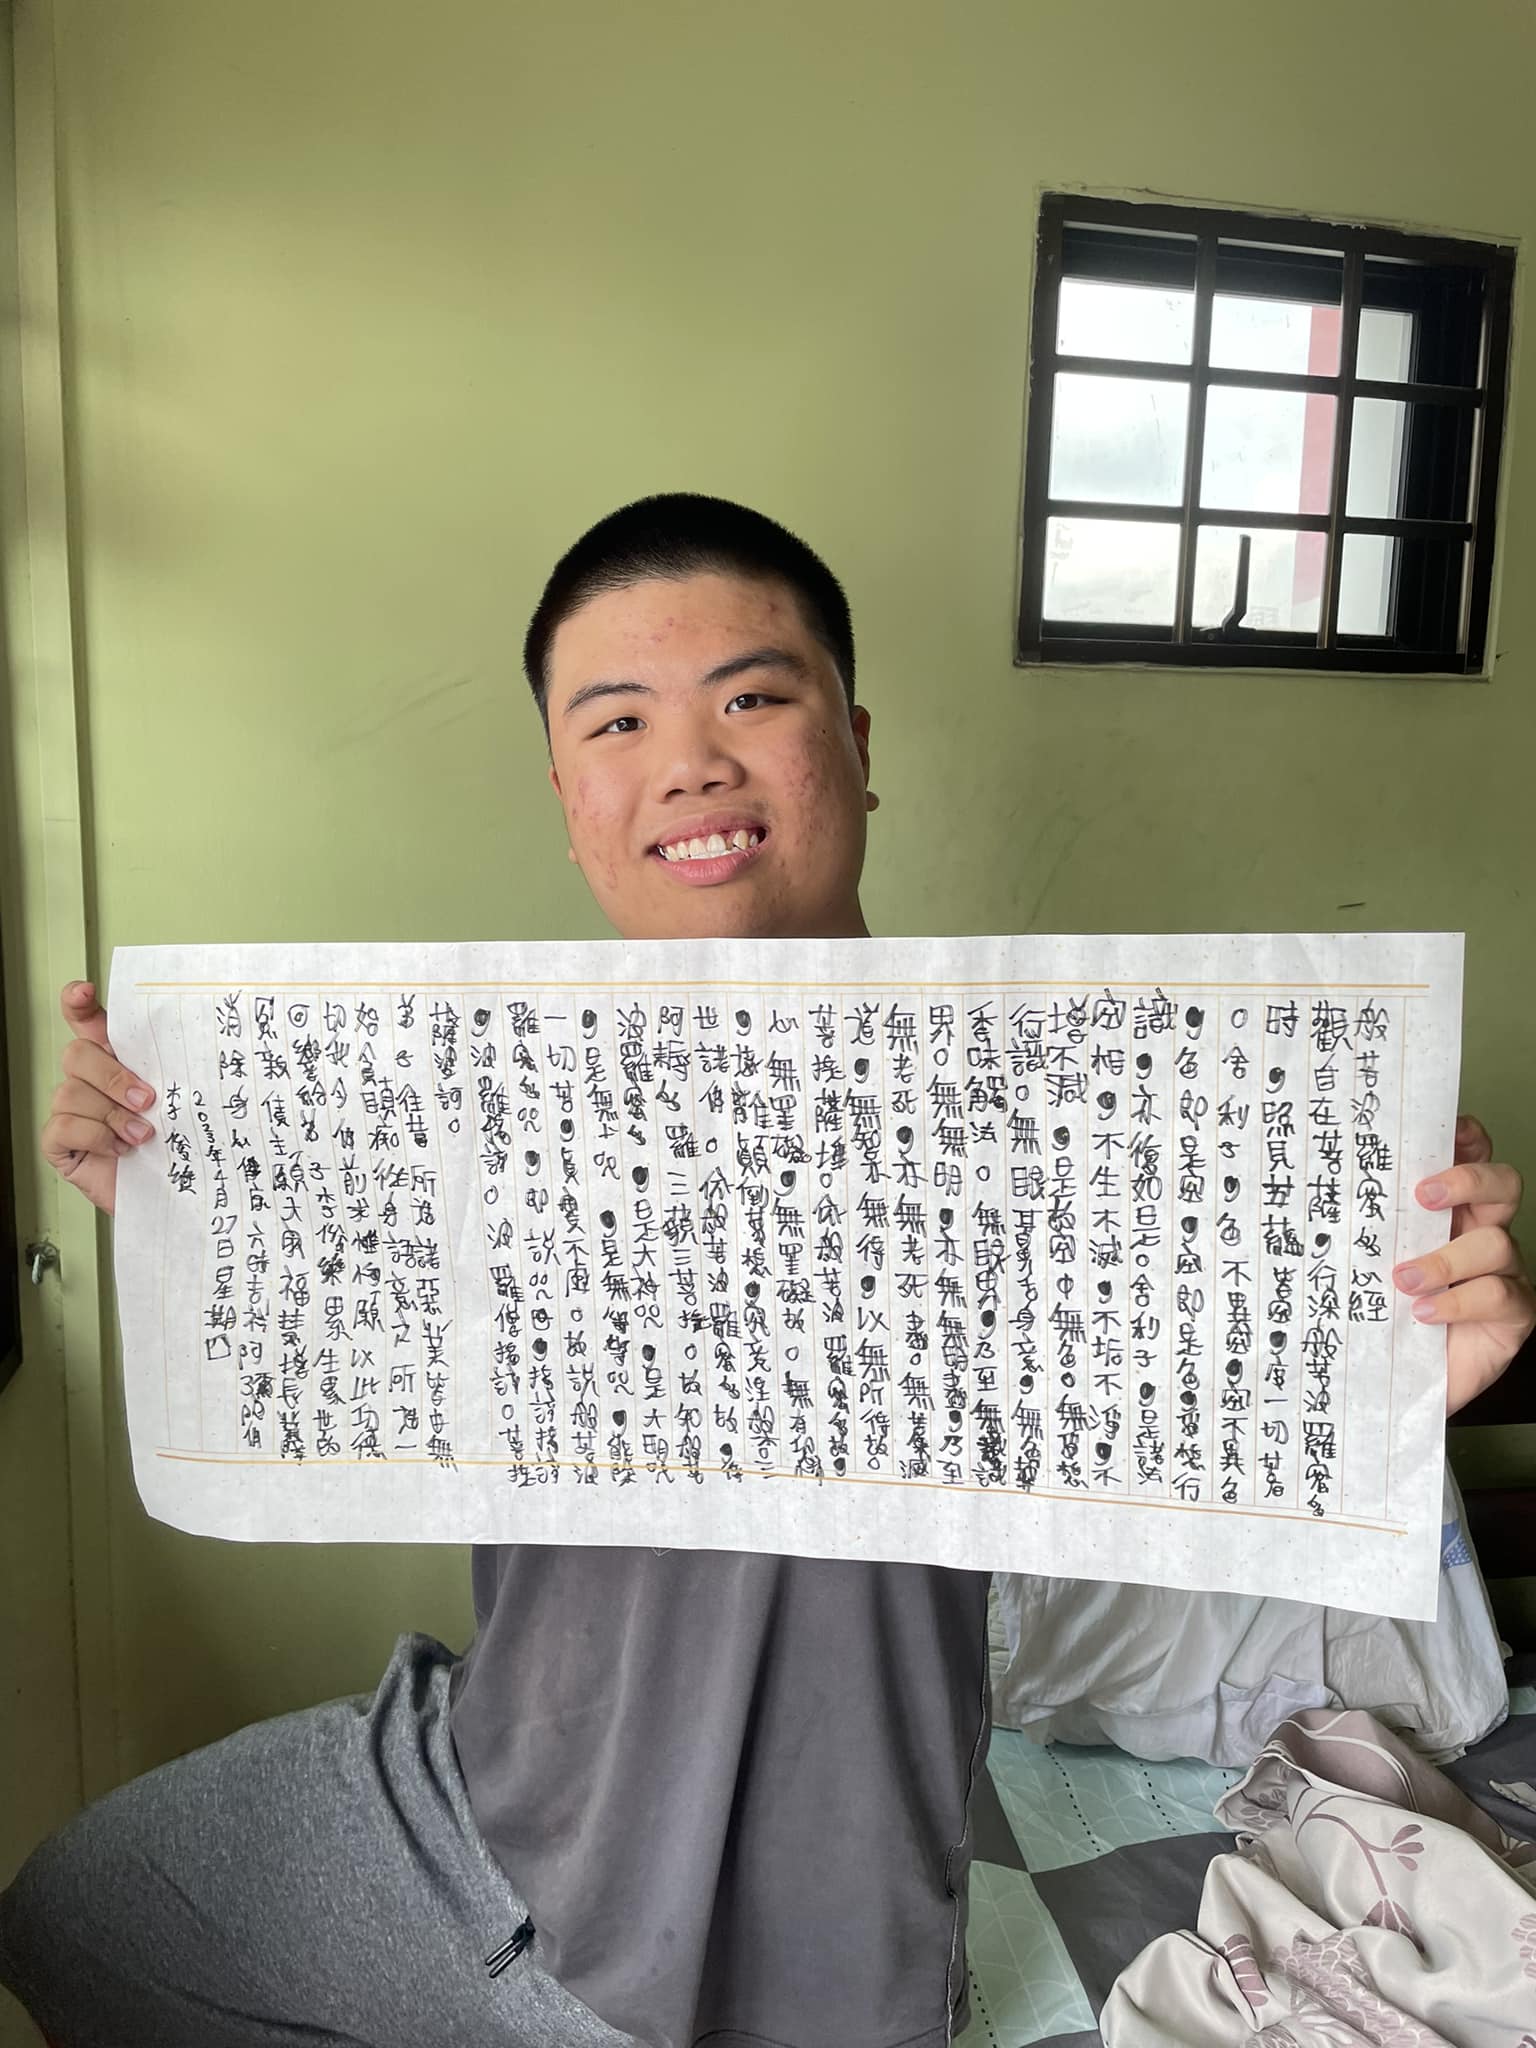 般若波羅密多心經
觀自在菩薩，行深般若波羅密多
時，照見五蘊皆空，度一切苦
。舍利子，色不異空，空不異色
，色即是空，空即是色，受想行
識，亦復如是。舍利子，是諸法
空相，不生不滅，不垢不淨，不
增不減，是故空中無色。無受想
行識。無眼耳鼻舌身意，無色聲
香味觸法。無眼界，乃至無意識
界。無無明，亦無無明盡，乃至
無老死，亦無老死盡。無苦集滅
道，無智亦無得，以無所得故。
菩提薩埵。依般若波羅密多故，
心無罣礙，無罣礙故。無有恐怖
，遠離顛倒夢想，究竟涅槃。三
世諸佛。依般若波羅密多故，得
阿耨多羅三藐三菩提。故知般若
波羅密多，是大神咒，是大明咒
，是無上咒，是無等等咒，能除
一切苦，真實不虛。故說般若波
羅密多咒，即說咒曰，揭諦揭諦
，波羅揭諦。波羅僧揭諦。菩提
薩婆訶。
弟子往昔所造諸惡業皆由無
始貪瞋痴從身語意之所造一
切我今佛前求懺悔願以此功德
回響給弟子李俊樂累生累世的
冤親債主願大家福慧增長業障
消除身心健康六時吉祥阿彌陀佛
2023年4月27日星期四
李俊維